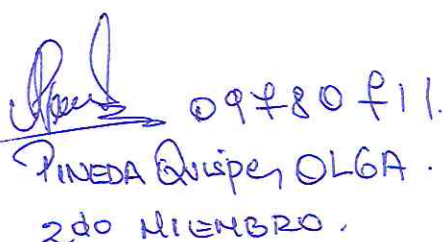 09780711.
PINEDA Quispe, OLGA.
2do MIEMBRO.